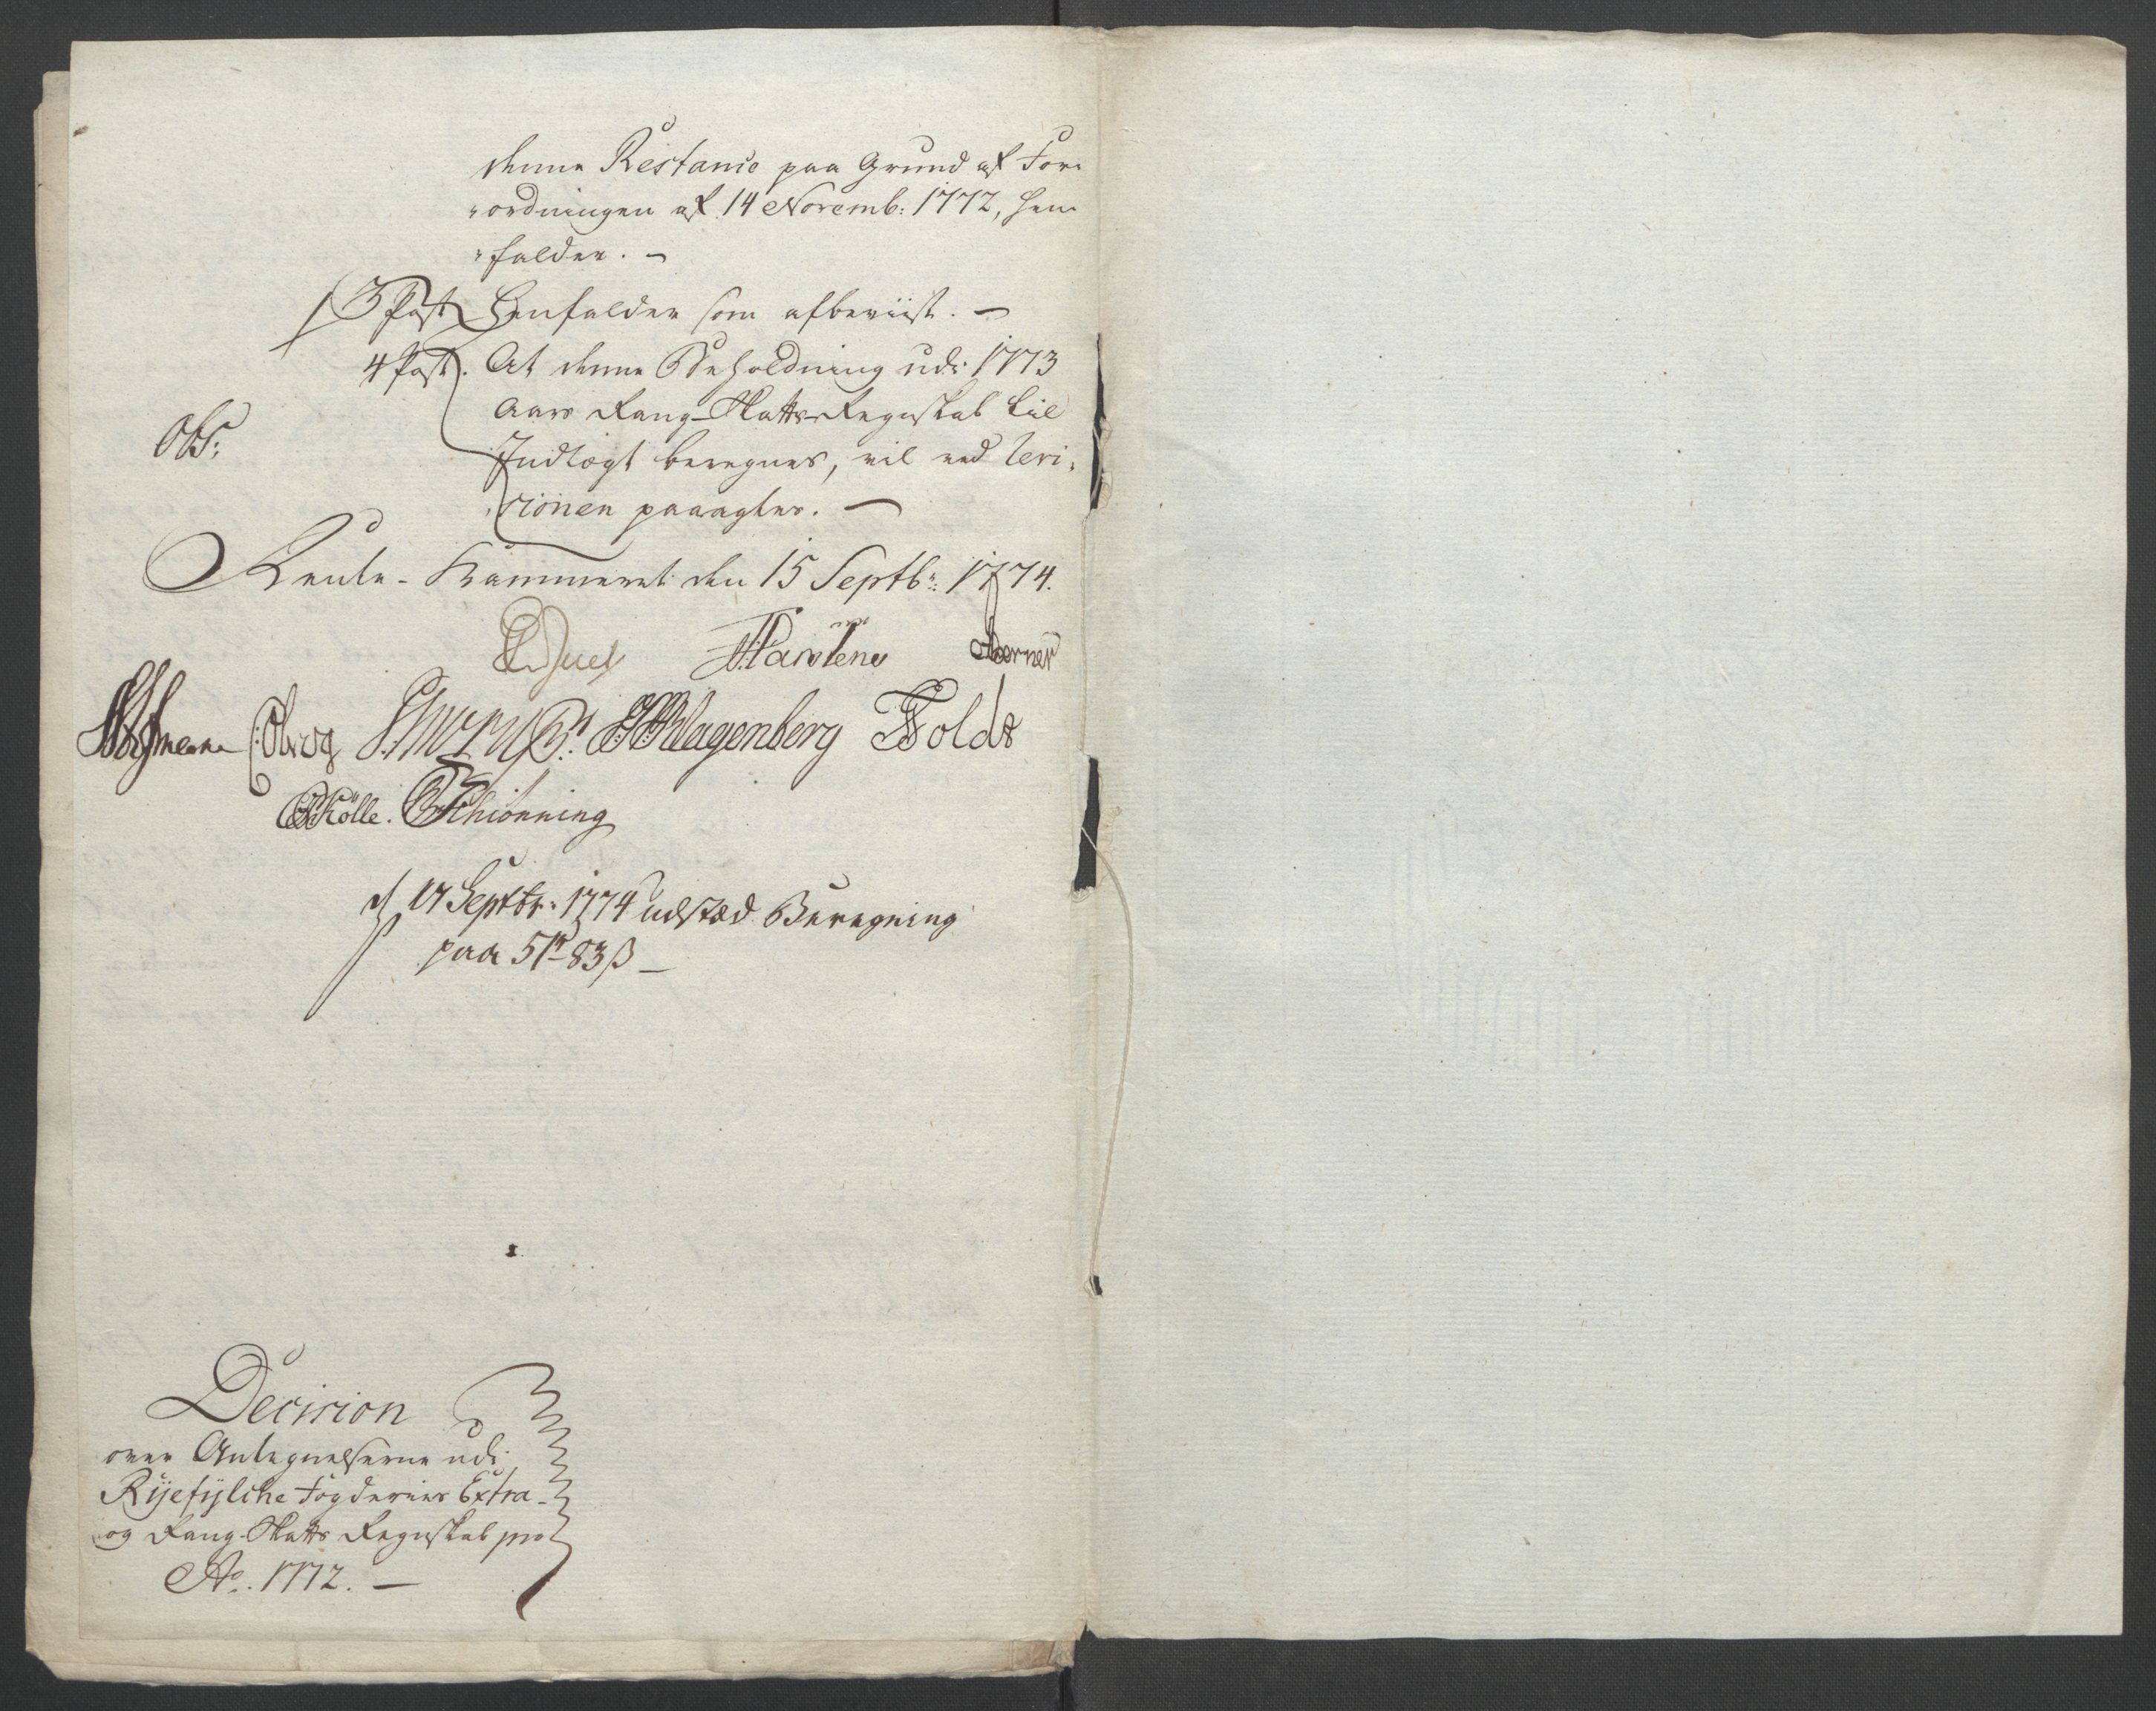 denne Restance paa Grund af For-
-ordningen af 14 Novemb: 1772, hen-
-falder. -
3 Post Henfalder som afbeviist. -
4 Post. At denne Beholdning udi 1773
Aars Rang-Skatts-Regnskab til
Obs:
Indtægt beregnes, vil ved Revi-
-sionen paaagtes. -
Rente-Kammeret den 15 Septbr: 1774.
Juel Martens Berner
Hofmann Obiog Klagenberg Toldt
Kölle. Schiönning
d 17 Septbr: 1774 udstæd Beregning
paa 5 rd 83 ß -
Decision
over Antegnelserne udi
Ryefylche Fogderies Extra-
og Rang-Skatts Regnskab pro
Ao. 1772. -